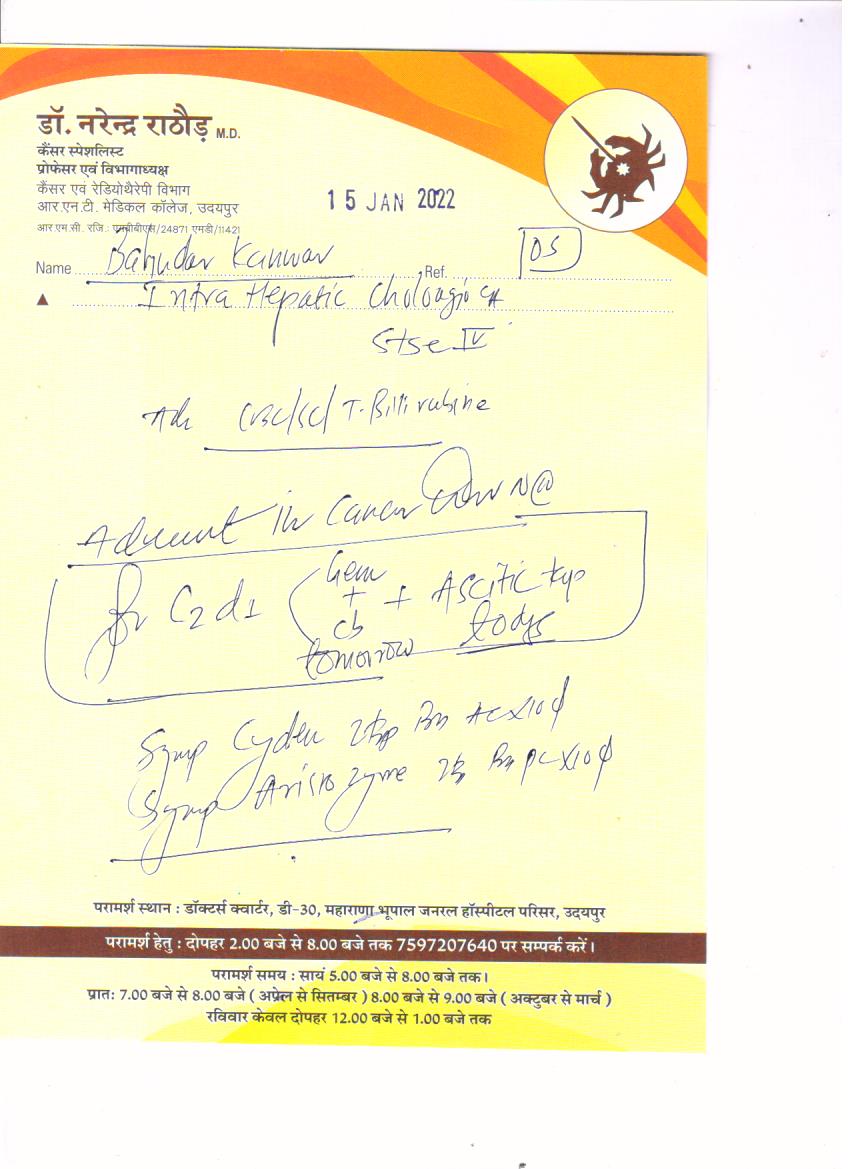 डॉ. नरेन्द्र राठौड़ M.D.
कैंसर स्पेशलिस्ट
प्रोफेसर एवं विभागाध्यक्ष
कैंसर एवं रेडियोथैरेपी विभाग
आर.एन.टी. मेडिकल कॉलेज, उदयपुर
आर.एम.सी. रजि.: एमबीबीएस/24871 एमडी/11421
15 JAN 2022
Name Kanwar Ref. OS
Intra Hepatic Cholangio CA
Stge IV
Adv CBC/SC/T-Billirubine
Admit in Cancer
for C2d1 Gem + cb tomorrow + Ascitic tap today
Syrup 2tsp Bn AC x10
Syrup Aristozyme Bn PC x10
परामर्श स्थान : डॉक्टर्स क्वार्टर, डी-30, महाराणा भूपाल जनरल हॉस्पीटल परिसर, उदयपुर
परामर्श हेतु : दोपहर 2.00 बजे से 8.00 बजे तक 7597207640 पर सम्पर्क करें।
परामर्श समय : सायं 5.00 बजे से 8.00 बजे तक।
प्रात: 7.00 बजे से 8.00 बजे ( अप्रेल से सितम्बर ) 8.00 बजे से 9.00 बजे ( अक्टुबर से मार्च )
रविवार केवल दोपहर 12.00 बजे से 1.00 बजे तक